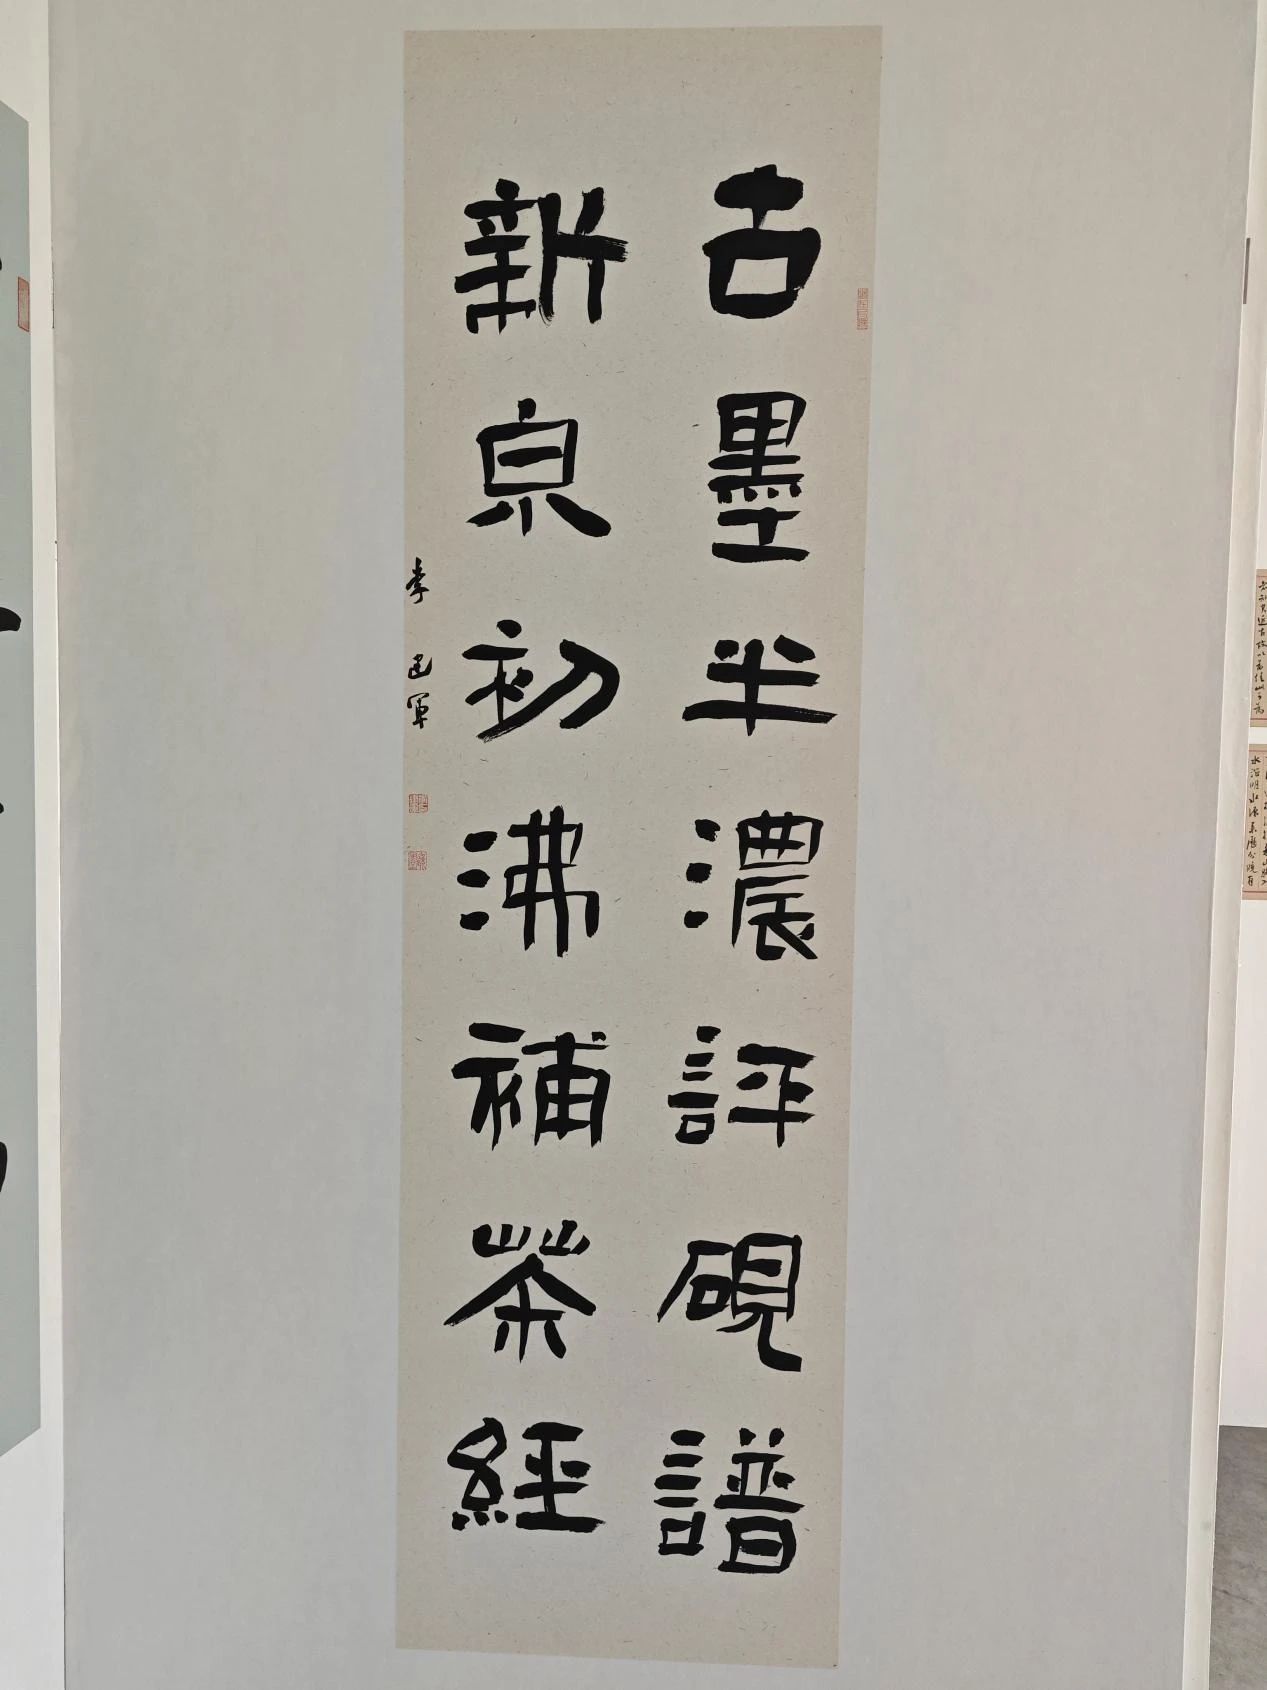 古墨半濃評硯譜
新泉初沸補茶經
李建軍